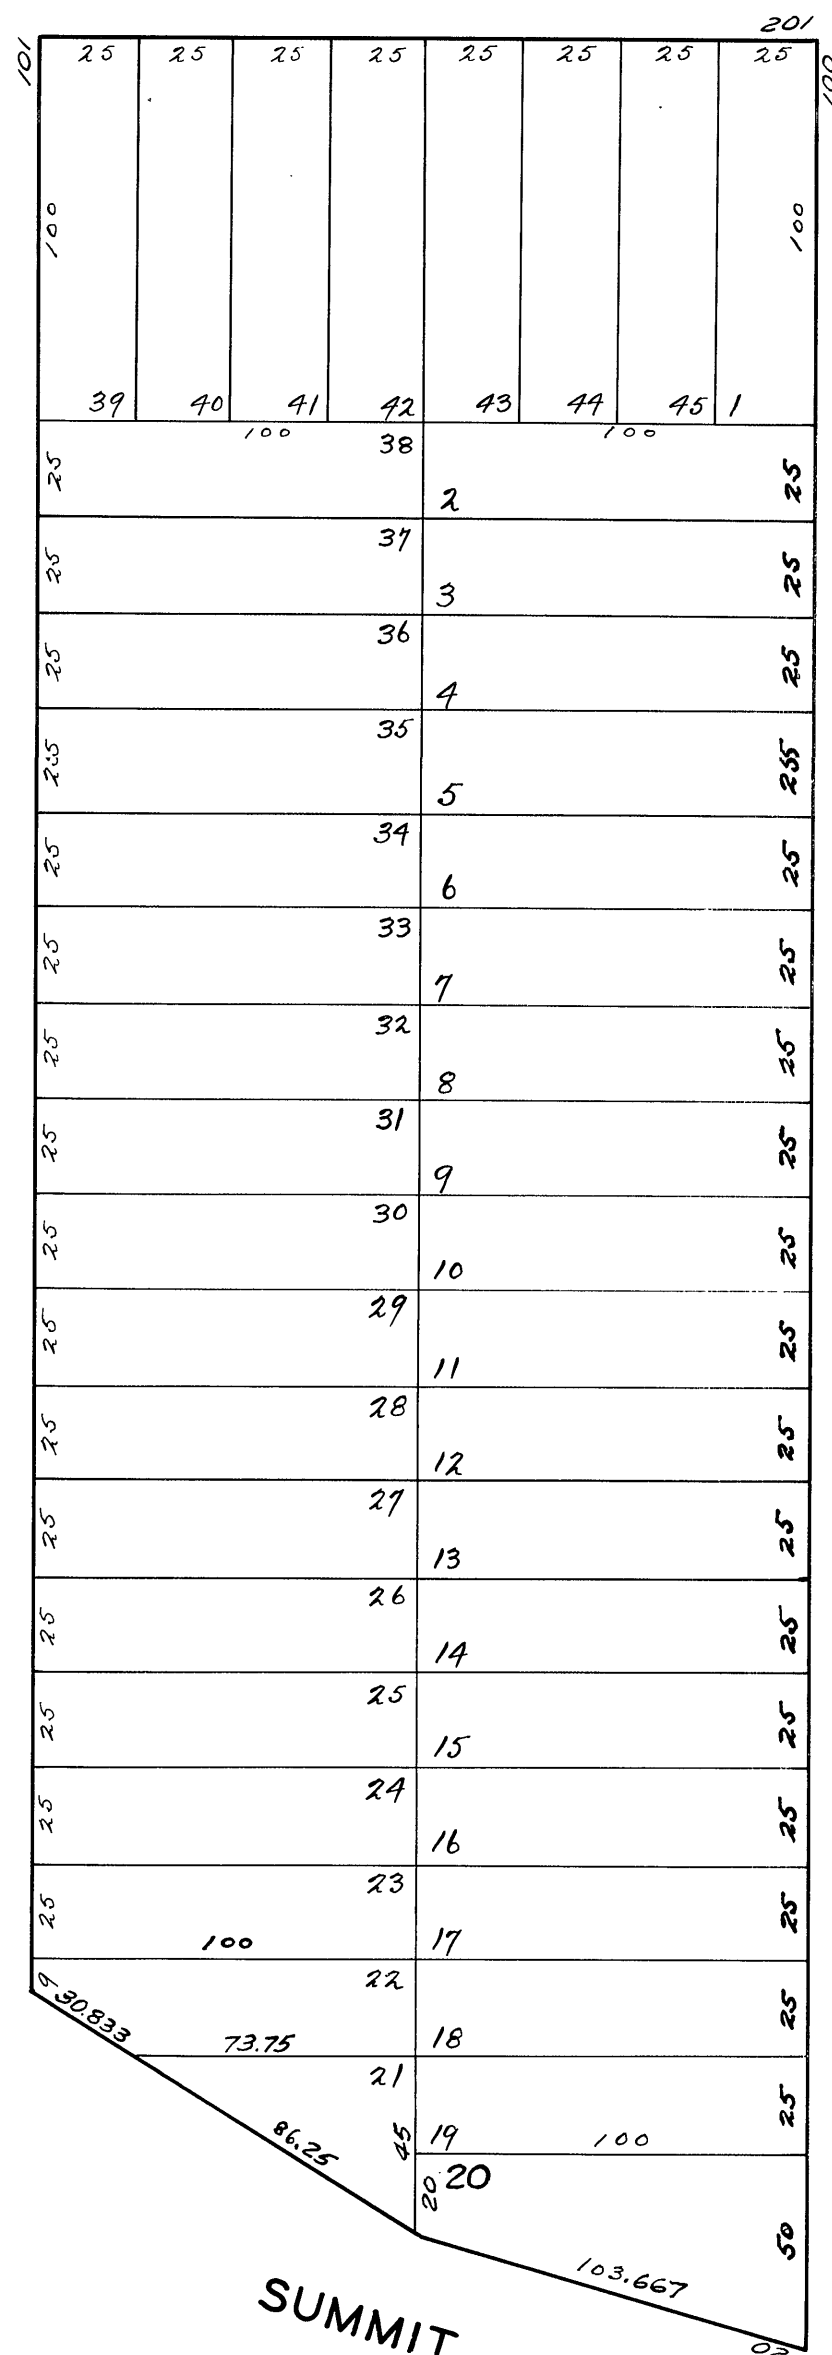 201
101 25 25 25 25 25 25 25 25 100
100 100
39 40 41 42 43 44 45 1
100 100
25 38 2 25
25 37 3 25
25 36 4 25
25 35 5 25
25 34 6 25
25 33 7 25
25 32 8 25
25 31 9 25
25 30 10 25
25 29 11 25
25 28 12 25
25 27 13 25
25 26 14 25
25 25 15 25
25 24 16 25
25 23 17 25
100
9 30.833 22 18 25
73.75
21 19 25
86.25 45 100
20 20 50
103.667
SUMMIT